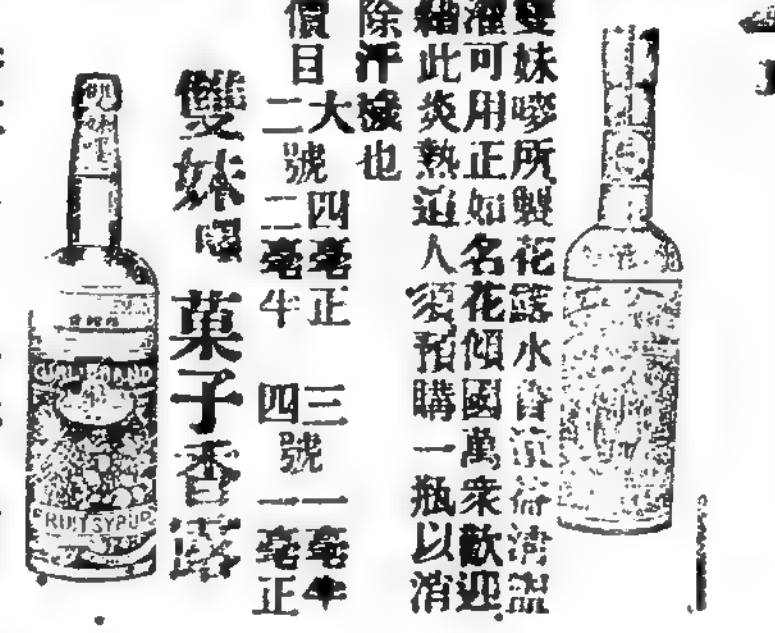 雙妹嘜所製花露水香涼清盥
濯可用正如名花傾國萬衆歡迎
此炎熱迫人須預購一瓶以消
除汗穢也
價目
大號四毫正 三號一毫半
二號二毫半 四號一毫正
雙妹嘜菓子香露
雙妹嘜
GIRL BRAND
FRUIT SYRUP